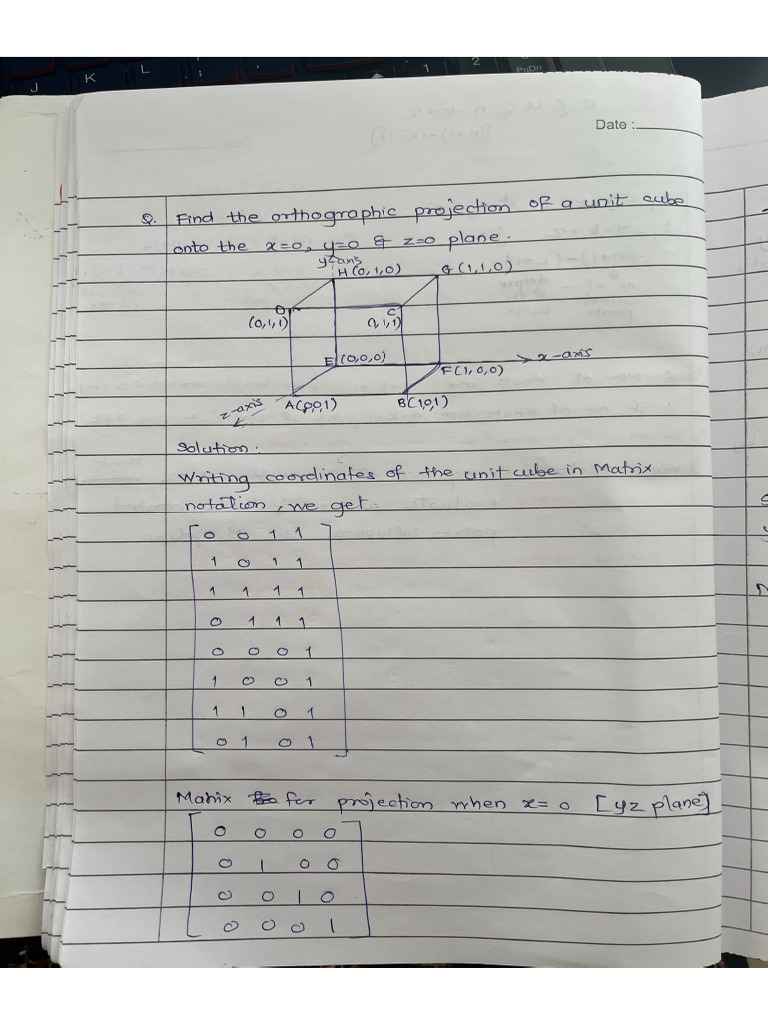 J K L ; : 1 2 PgDn
Date :
Q. Find the orthographic projection of a unit cube
onto the x=0, y=0 & z=0 plane.
y-axis
H(0,1,0) G(1,1,0)
D C
(0,1,1) (1,1,1)
E(0,0,0) x-axis
F(1,0,0)
z-axis A(0,0,1) B(1,0,1)
Solution.
Writing coordinates of the unit cube in Matrix
notation, we get.
0 0 1 1
1 0 1 1
1 1 1 1
0 1 1 1
0 0 0 1
1 0 0 1
1 1 0 1
0 1 0 1
Matrix for projection when x=0 [yz plane]
0 0 0 0
0 1 0 0
0 0 1 0
0 0 0 1